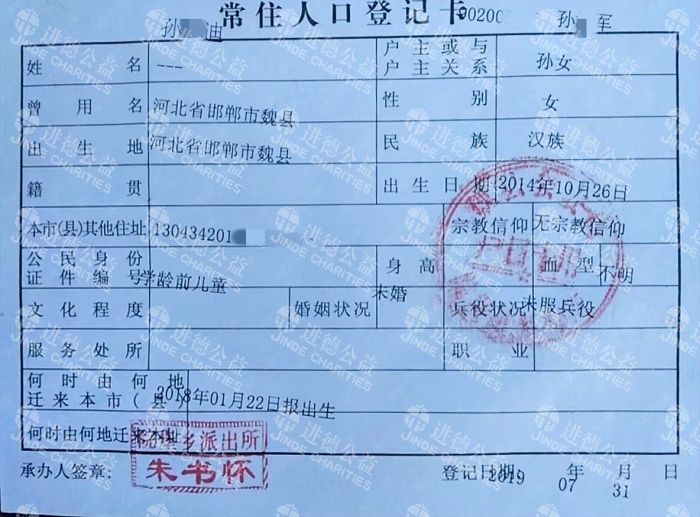 常住人口登记卡
孙 迪 孙 军
姓名 --- 户主或与户主关系 孙女
曾用名 河北省邯郸市魏县 性别 女
出生地 河北省邯郸市魏县 民族 汉族
籍贯 出生日期 2014年10月26日
本市(县)其他住址 130434201 宗教信仰 无宗教信仰
公民身份证件编号 学龄前儿童 身高 血型 不明
文化程度 婚姻状况 未婚 兵役状况 未服兵役
服务处所 职业
何时由何地迁来本市(县) 2018年01月22日报出生
何时由何地迁来本址
乡派出所
朱书怀
承办人签章: 登记日期: 2019年07月31日
进德公益
JINDE CHARITIES